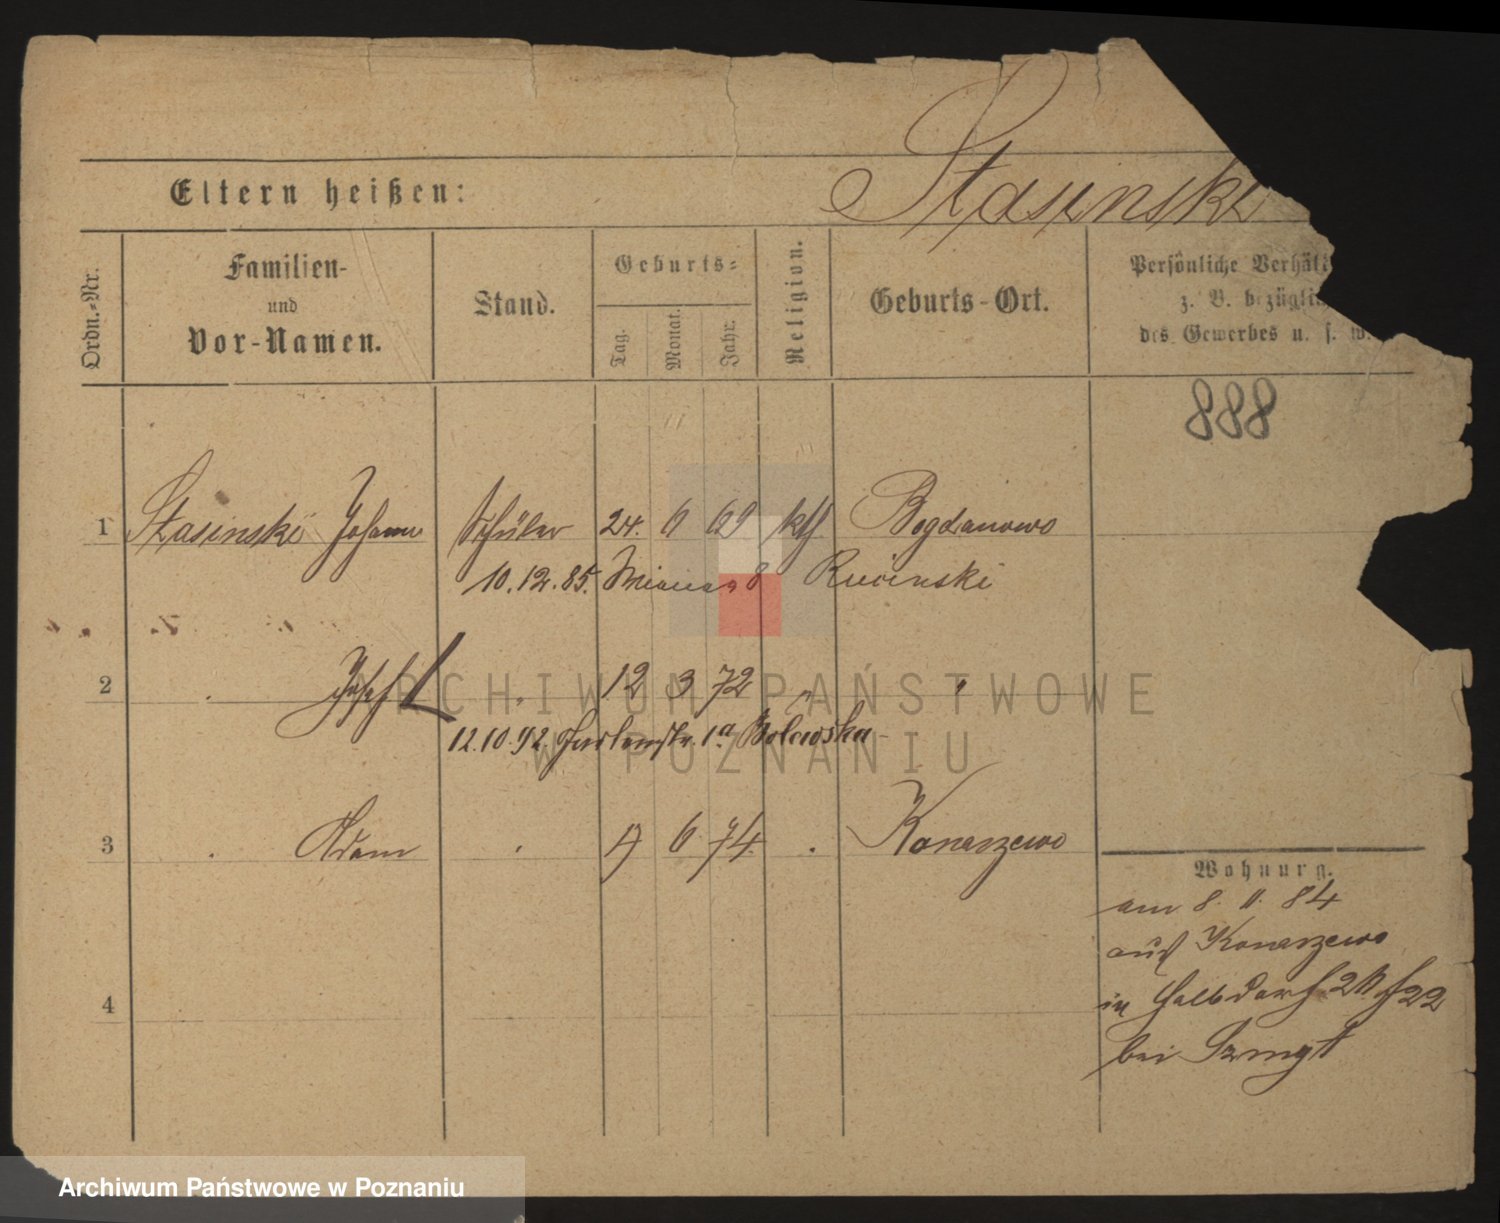 Eltern heißen: Stasinski
Ordn.-Nr.
Familien-
und
Vor-Namen.
Stand.
Geburts-
Tag.
Monat.
Jahr.
Religion.
Geburts-Ort.
Persönliche Verhält
z. B. bezüglich
des Gewerbes u. s. w.
888
1 Stasinski Johann Schüler 24. 6 69 kth Bogdanowo
10.12.85. Rucinski
2 " Josef " 12 3 72 " "
12.10.92. 1a
3 " Adam " 17 6 74 " Konarzewo
Wohnung.
am 8. 11. 84
aus Konarzewo
in Halbdorfstr 22
bei Szmyt
4
ARCHIWUM PAŃSTWOWE
W POZNANIU
Archiwum Państwowe w Poznaniu